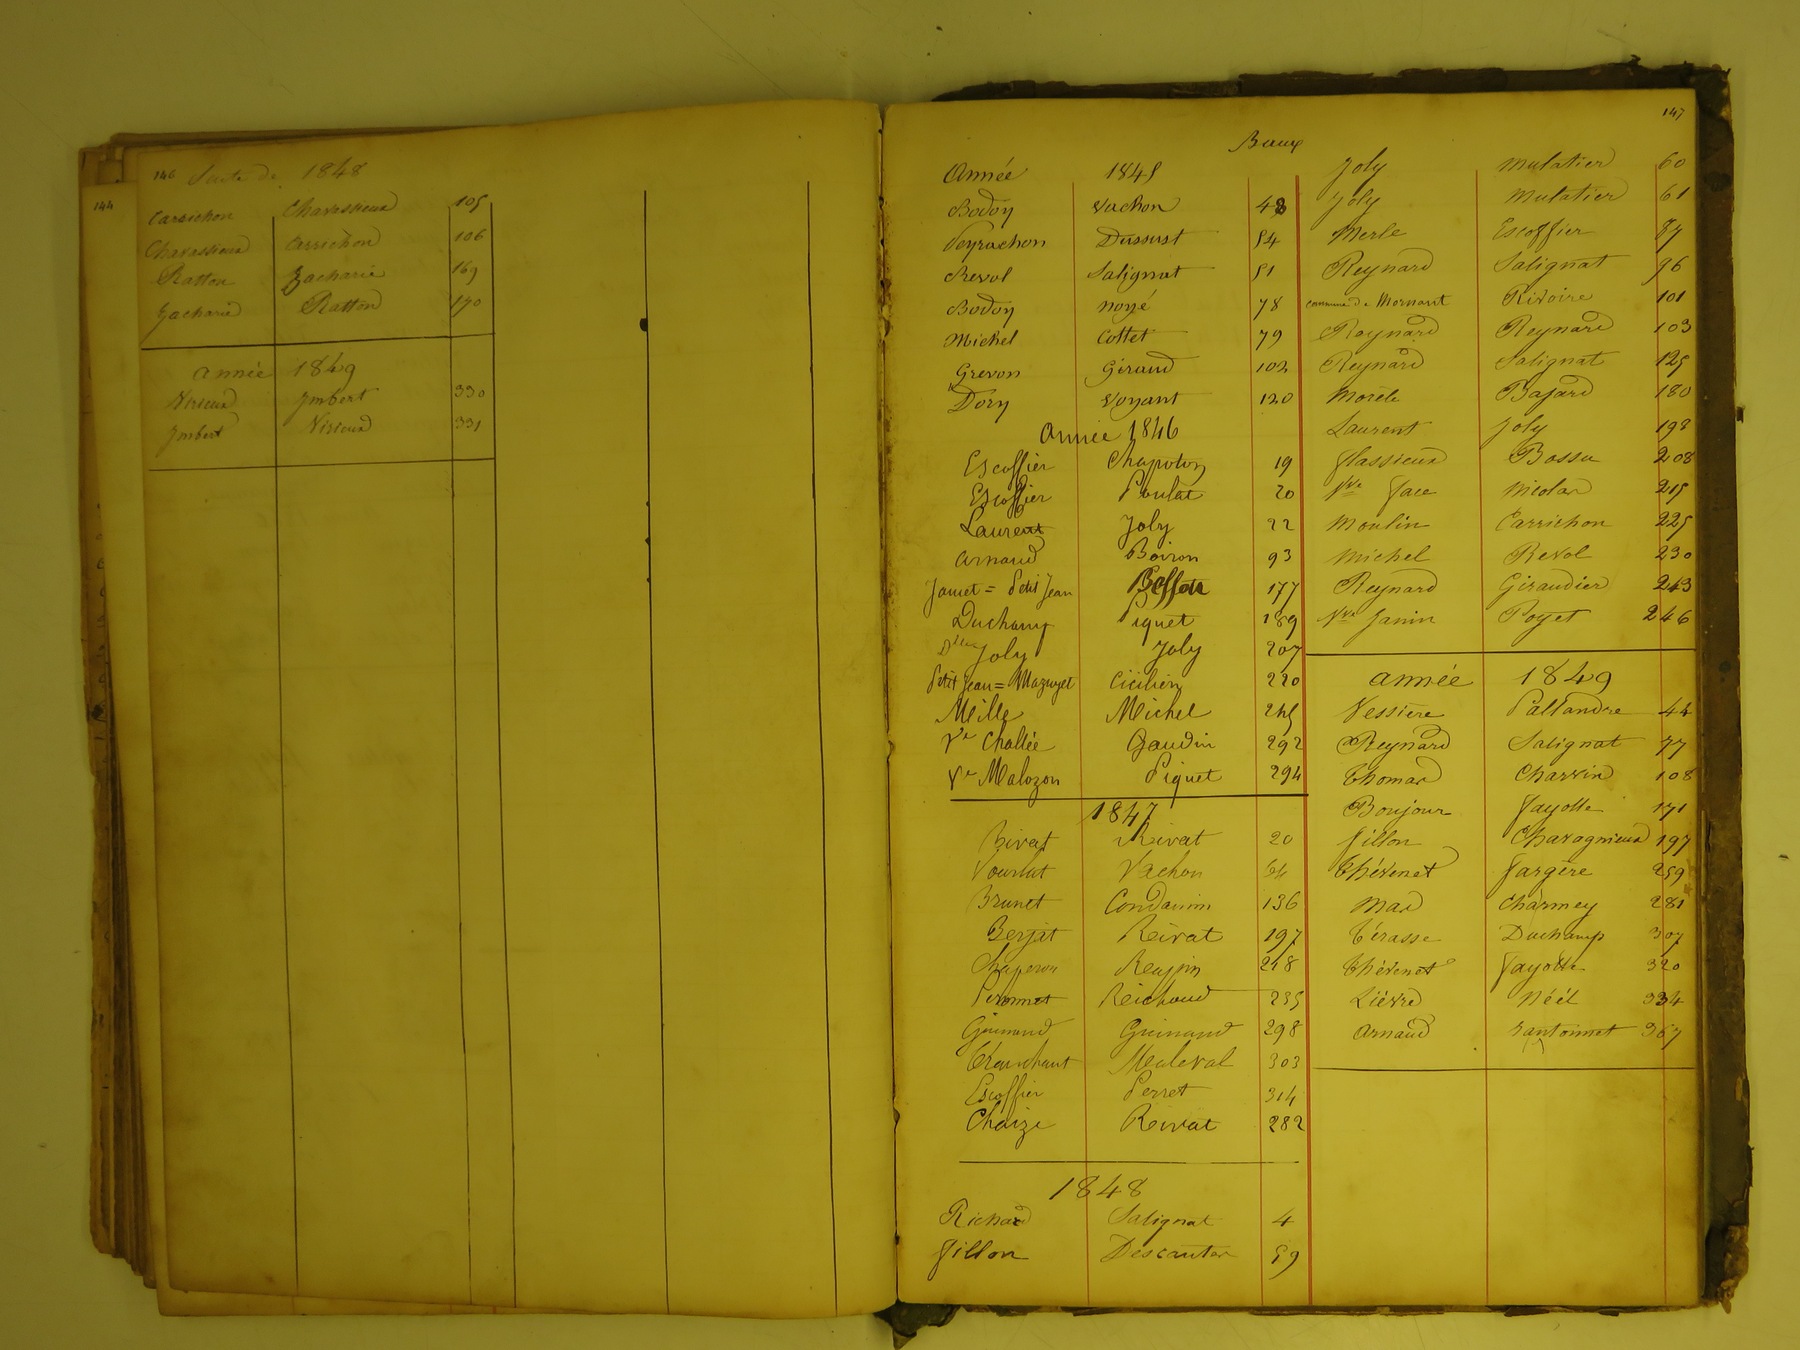 144
146 Suite de 1848
Carrichon Chavassieux 105
Chavassieux Carrichon 106
Ratton Zacharie 169
Zacharie Ratton 170
année 1849
Nirieux Jmbert 330
Jmbert Nirieux 331
147
Baux
Année 1845
Bodoy Vachon 48
Peyrachon Dussust 54
Revol Salignat 51
Bodoy noyé 78
Michel Cottet 79
Grevon Giraud 102
Dory Voyant 120
Année 1846
Escoffier Chapoton 19
Escoffier Poulat 20
Laurent Joly 22
Arnaud Boiron 93
Jamet = Petit Jean 177
Duchamp Piquet 189
Dlle Joly Joly 207
Petit Jean = Mazuyet Cicilien 220
Mille Michel 245
Ve Challée Gaudin 292
Ve Malozon Piquet 294
1847
Rivat Rivat 20
Vourlat Vachon 64
Brunet Condamin 136
Berjat Rivat 197
Chaperon Raupin 218
Peronnet Reichaud 235
Guinand Guinand 298
Tranchant Maleval 303
Escoffier Perret 314
Chaize Rivat 282
1848
Richard Salignat 4
Fillon Descautes 59
Joly Mulatier 60
Joly Mulatier 61
Merle Escoffier 87
Reynard Salignat 96
Commune de Mornant Rivoire 101
Reynard Reynard 103
Reynard Salignat 125
Morèle Bajard 180
Laurent Joly 198
Flassieux Bossu 208
Vve Face Nicolas 215
Moulin Carrichon 225
Michel Revol 230
Reynard Giraudier 243
Vve Janin Poyet 246
année 1849
Vessière Pallandre 44
Reynard Salignat 77
Thomas Charvin 108
Boujour Fayolle 171
Fillon Chavagnieux 197
Thévenet Fargère 259
Mas Charmey 281
Térasse Duchamp 307
Thévenet Fayolle 320
Lièvre Néél 334
Arnaud Zantonnet 367